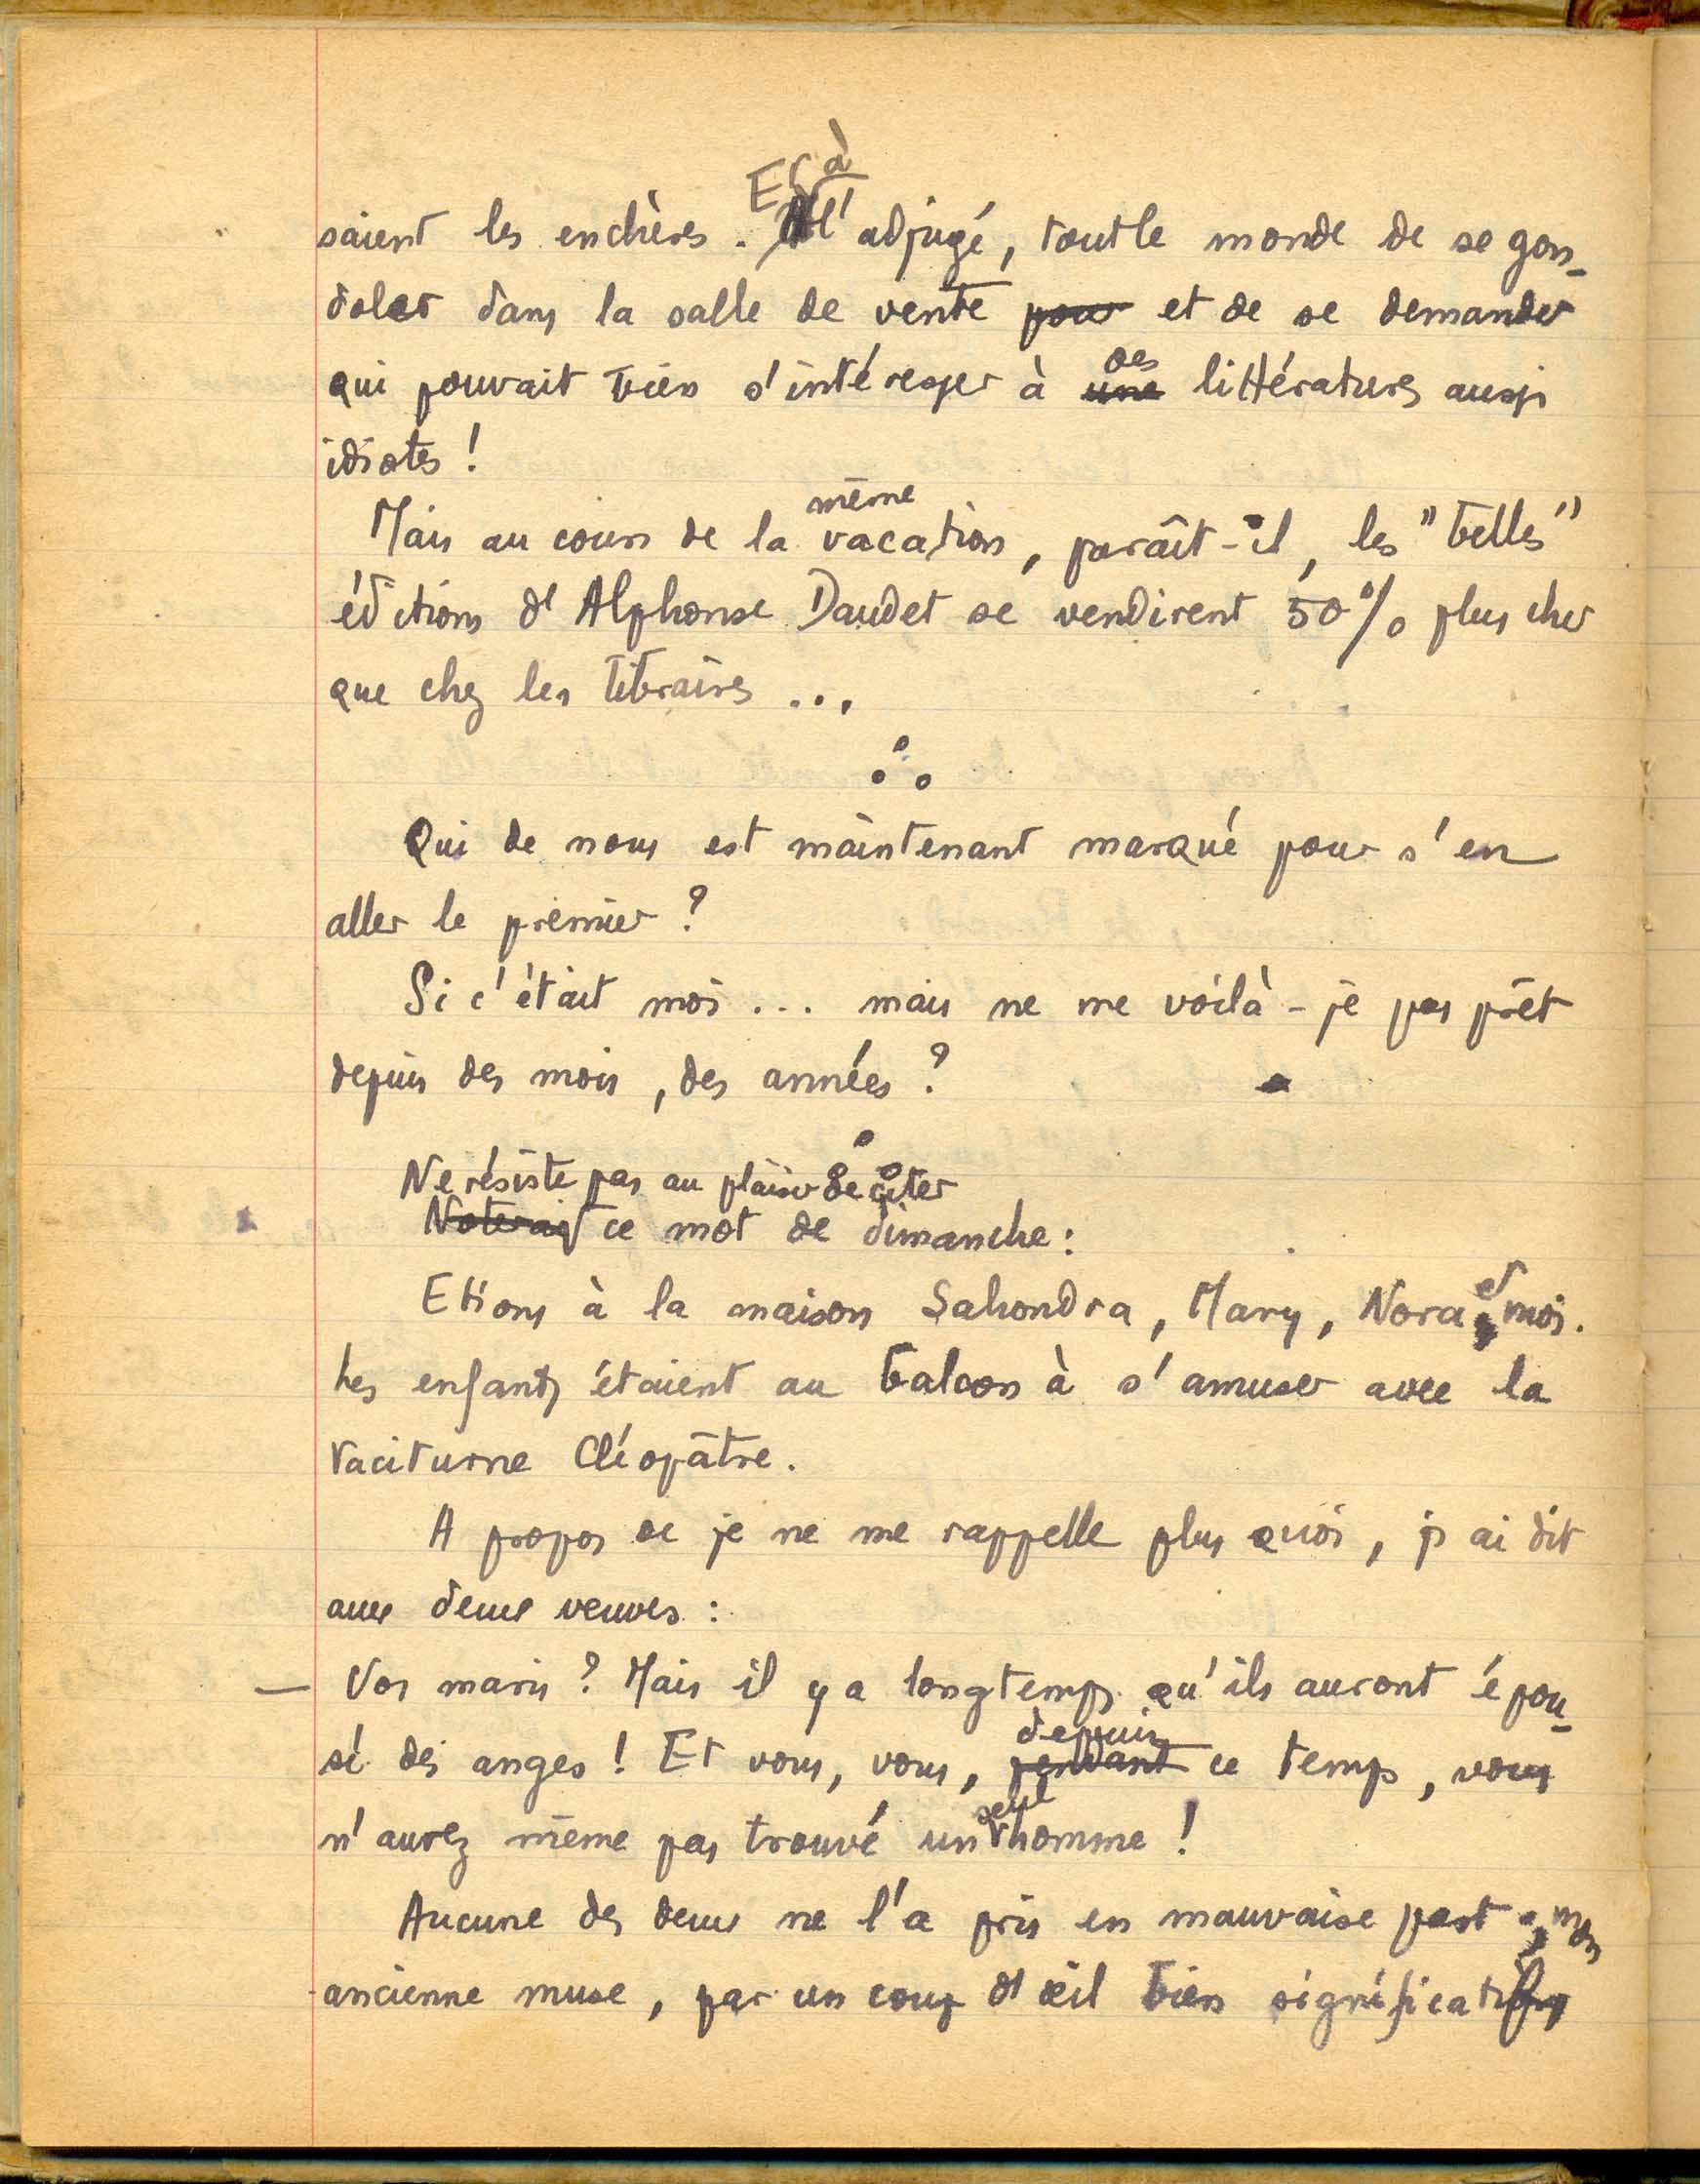 saient les enchères. Et à l'adjugé, tout le monde de se gon-
doler dans la salle de vente pour et de se demander
qui pouvait bien s'intéresser à une des littératures aussi
idiotes !
Mais au cours de la même vacation, paraît-il, les "belles"
éditions d'Alphonse Daudet se vendirent 50% plus cher
que chez les libraires ...
Qui de nous est maintenant marqué pour s'en
aller le premier ?
Si c'était moi ... mais ne me voilà-je pas prêt
depuis des mois, des années ?
Ne résiste pas au plaisir de citer
Noterai ce mot de dimanche :
Etions à la maison Sahondra, Mary, Nora et moi.
Les enfants étaient au balcon à s'amuser avec la
taciturne Cléopâtre.
A propos de je ne me rappelle plus quoi, j'ai dit
aux deux veuves :
— Vos maris ? Mais il y a longtemps qu'ils auront épou-
sé des anges ! Et vous, vous, pendant depuis ce temps, vous
n'aurez même pas trouvé un seul homme !
Aucune des deux ne l'a pris en mauvaise part ; mon
ancienne muse, par un coup d'œil bien significatif